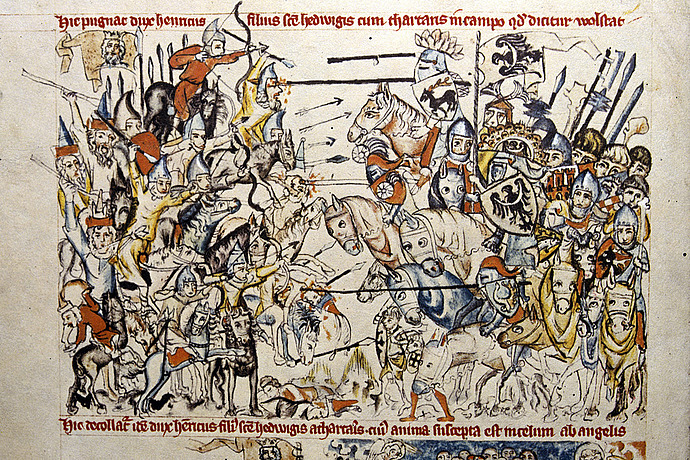 Hic pugnat dux henricus filius sc̄e hedwigis cum thartaris in campo qd̄ dicitur wolstat
Hic decollat᷑ idē dux hēricus fili᷒ sc̄e hedwigis a thartar᷒ cui᷒ anima suscepta est in celum ab angelis